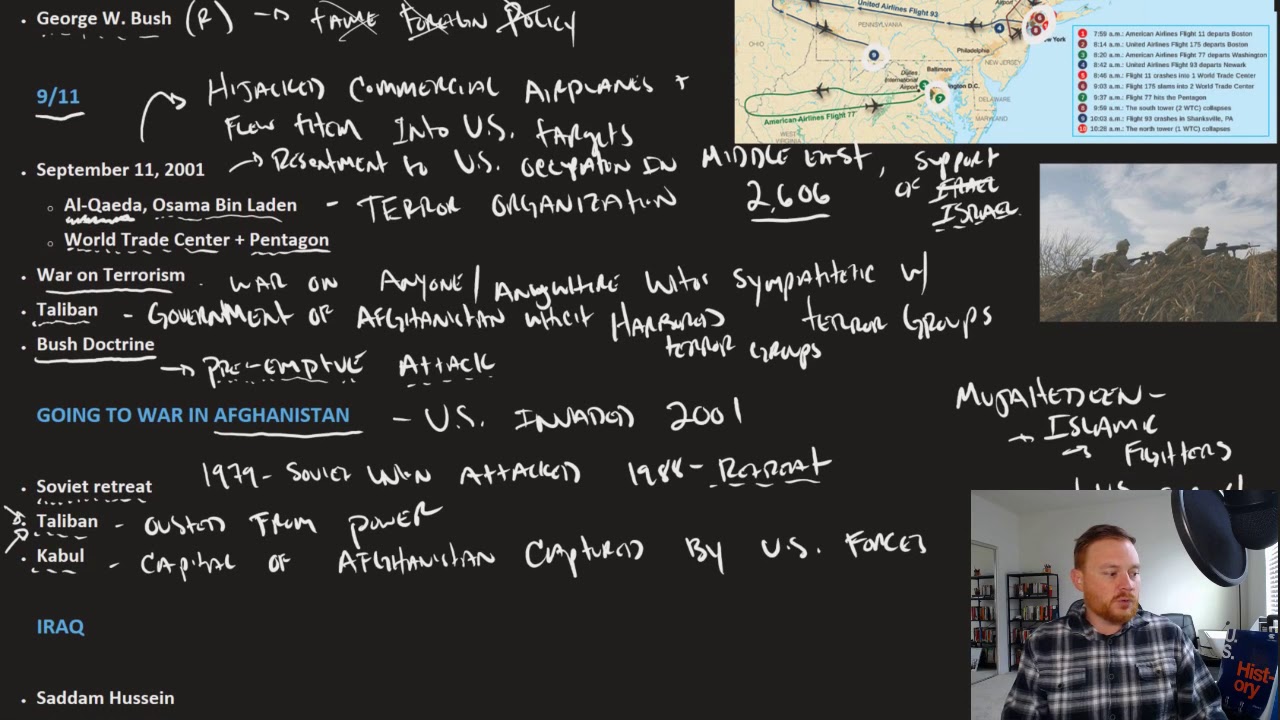 George W. Bush (R) → TAME FOREIGN POLICY
9/11
HIJACKED COMMERCIAL AIRPLANES +
FLEW THEM INTO U.S. TARGETS
September 11, 2001 → RESENTMENT TO U.S. OCCUPATION IN MIDDLE EAST, SUPPORT
OF ISRAEL
Al-Qaeda, Osama Bin Laden - TERROR ORGANIZATION 2,606
World Trade Center + Pentagon
War on Terrorism - WAR ON ANYONE/ANYWHERE WHO'S SYMPATHETIC W/
TERROR GROUPS
Taliban - GOVERNMENT OF AFGHANISTAN WHICH HARBORED
TERROR GROUPS
Bush Doctrine
→ PRE-EMPTIVE ATTACK
GOING TO WAR IN AFGHANISTAN - U.S. INVADED 2001
MUJAHEDEEN -
→ ISLAMIC
→ FIGHTERS
Soviet retreat 1979- SOVIET UNION ATTACKED 1988- RETREAT
Taliban - OUSTED FROM POWER
Kabul - CAPITAL OF AFGHANISTAN CAPTURED BY U.S. FORCES
IRAQ
Saddam Hussein
United Airlines Flight 93
PENNSYLVANIA
OHIO
Philadelphia
NEW JERSEY
Dulles
International
Airport
Baltimore
DELAWARE
MARYLAND
American Airlines Flight 77
WEST
VIRGINIA
1 7:59 a.m.: American Airlines Flight 11 departs Boston
2 8:14 a.m.: United Airlines Flight 175 departs Boston
3 8:20 a.m.: American Airlines Flight 77 departs Washington
4 8:42 a.m.: United Airlines Flight 93 departs Newark
5 8:46 a.m.: Flight 11 crashes into 1 World Trade Center
6 9:03 a.m.: Flight 175 slams into 2 World Trade Center
7 9:37 a.m.: Flight 77 hits the Pentagon
8 9:59 a.m.: The south tower (2 WTC) collapses
9 10:03 a.m.: Flight 93 crashes in Shanksville, PA
10 10:28 a.m.: The north tower (1 WTC) collapses
U.S.
Hist-
ory